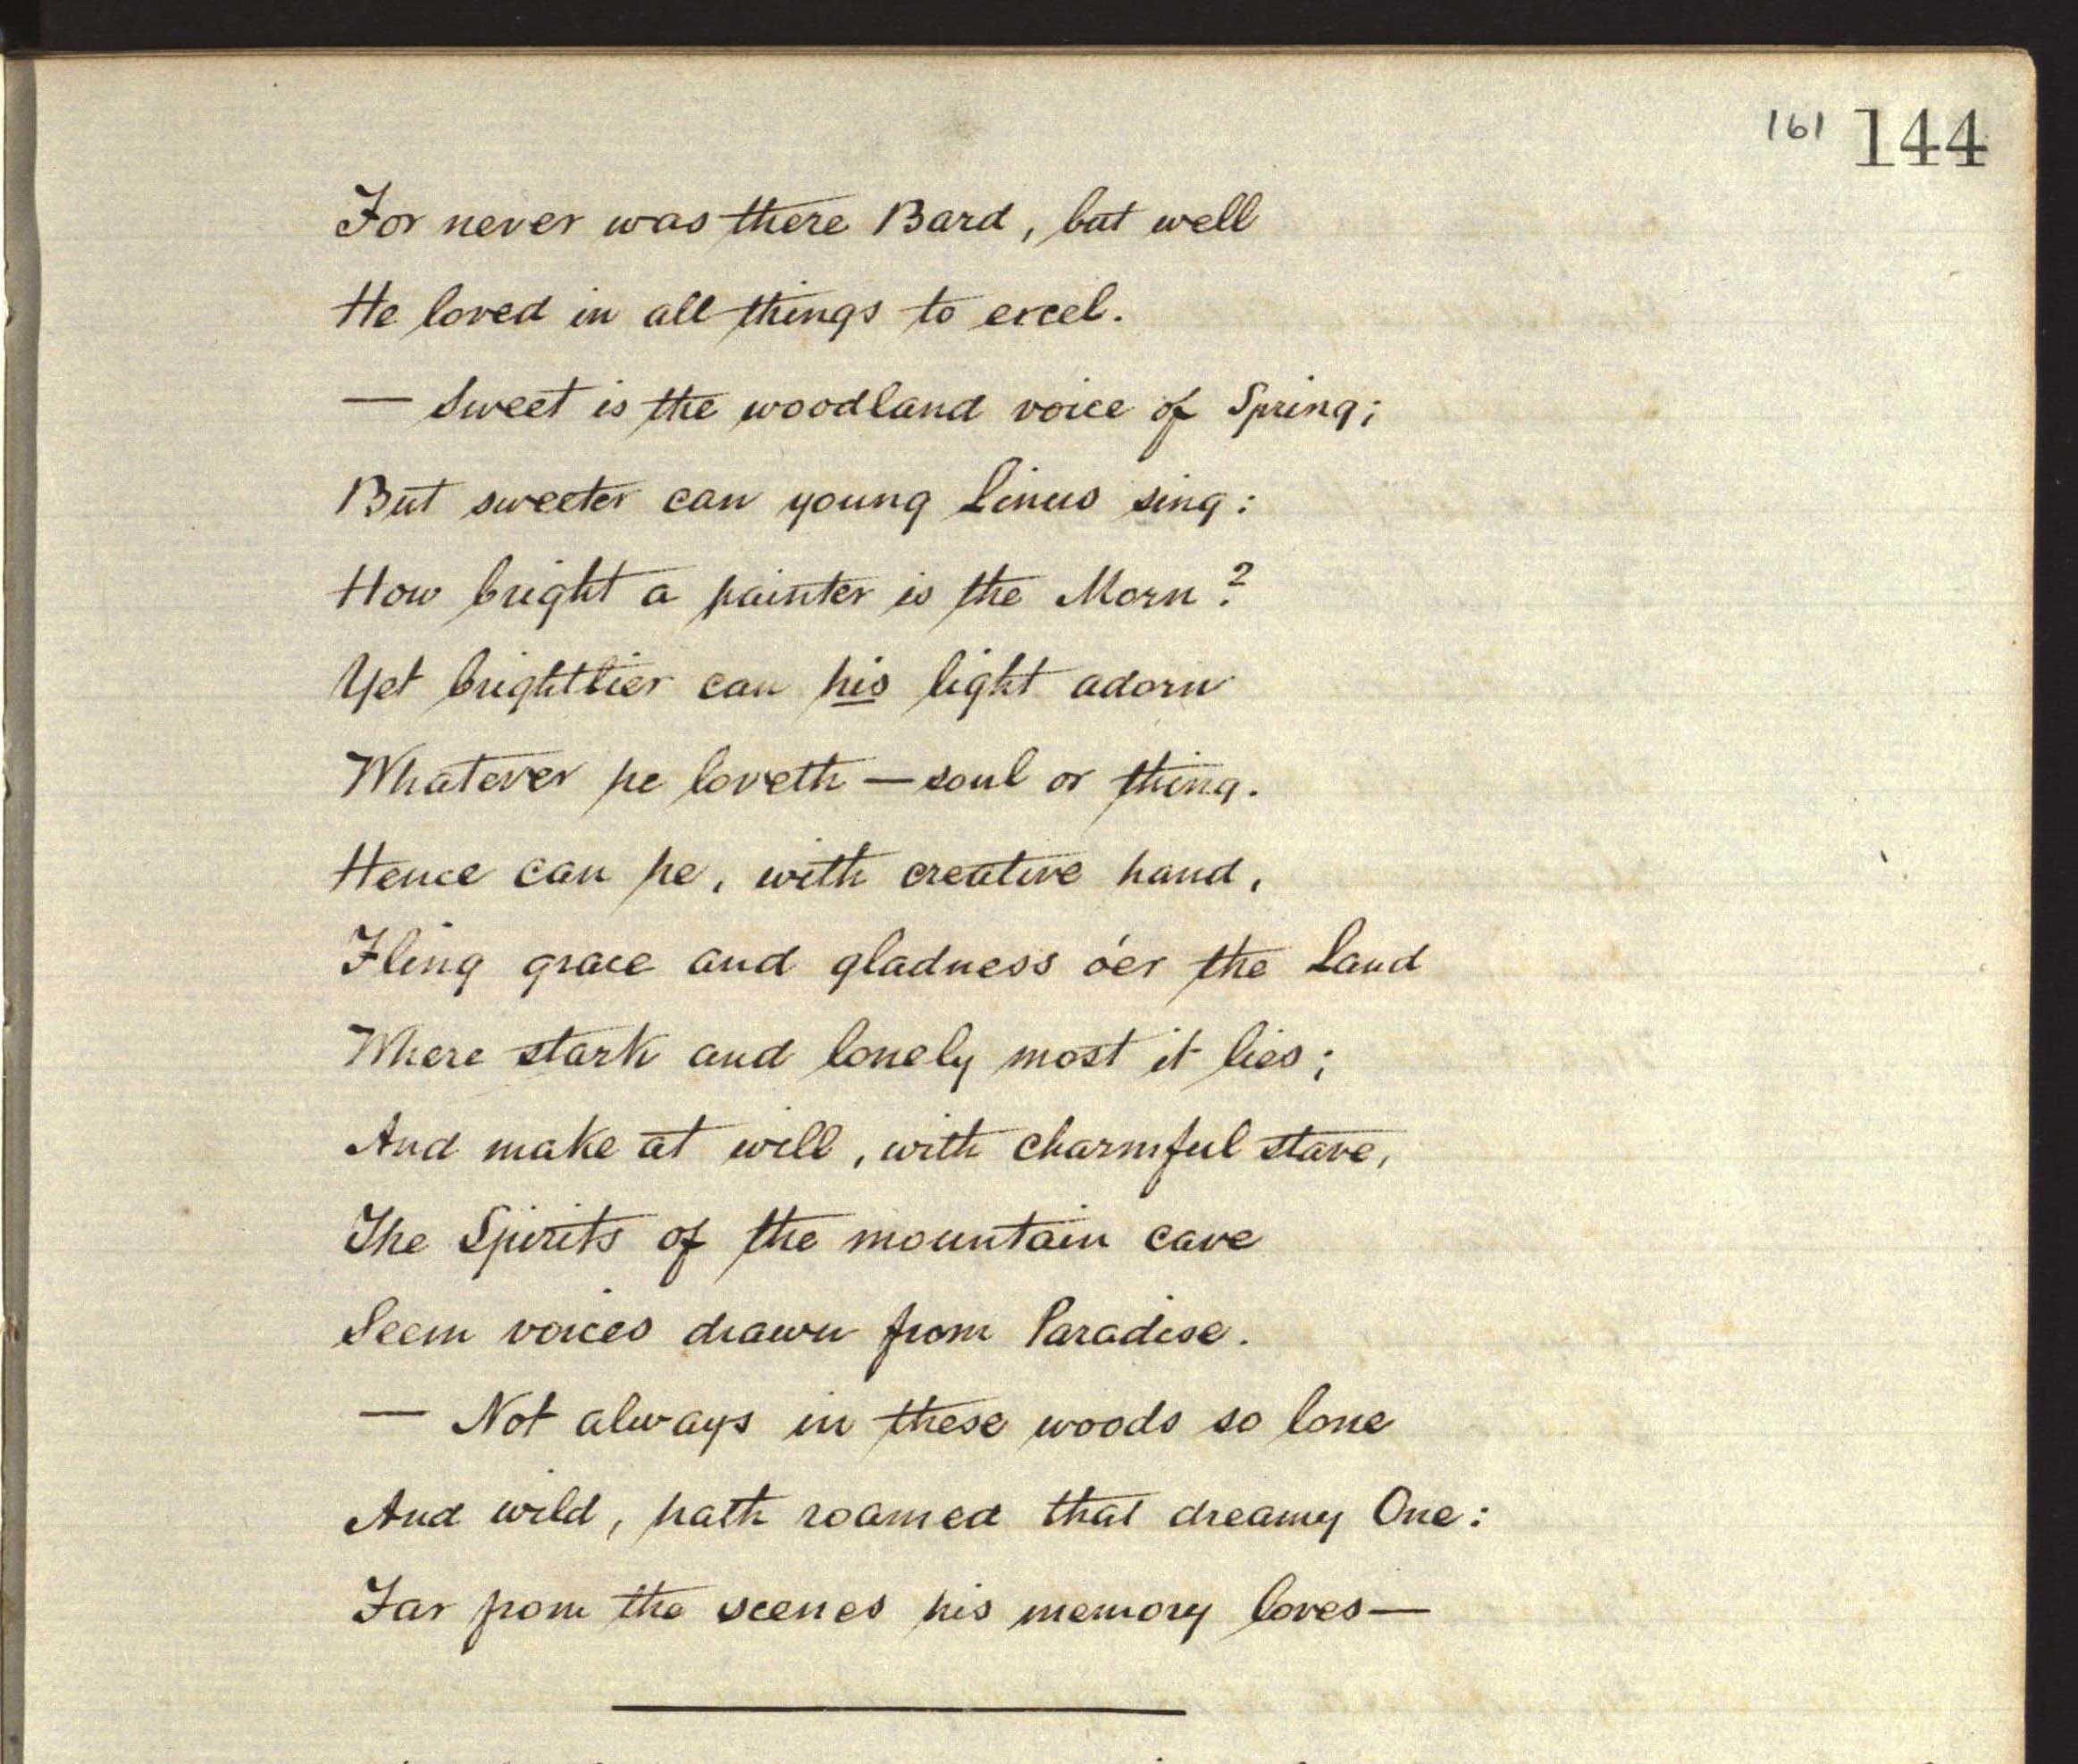 161 144
For never was there Bard, but well
He loved in all things to excel.
— Sweet is the woodland voice of Spring;
But sweeter can young Linus sing:
How bright a painter is the Morn?
Yet brightlier can his light adorn
Whatever he loveth — soul or thing.
Hence can he, with creative hand,
Fling grace and gladness o'er the Land
Where stark and lonely most it lies;
And make at will, with charmful stave,
The Spirits of the mountain cave
Seem voices drawn from Paradise.
— Not always in these woods so lone
And wild, hath roamed that dreamy One:
Far from the scenes his memory loves—